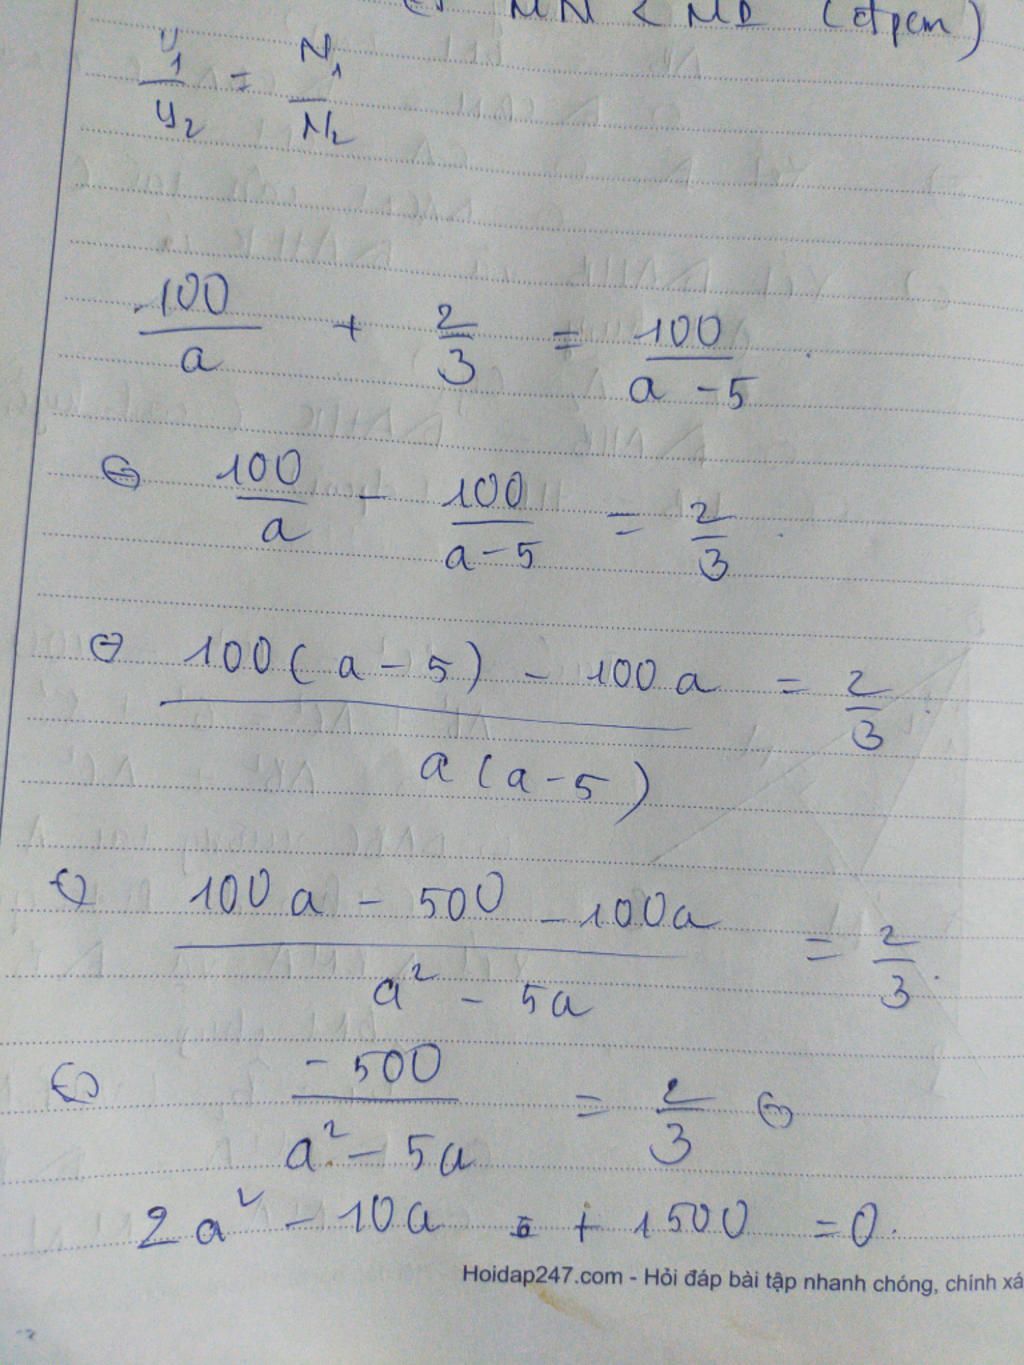 MN < MP (đpcm)
y₁/y₂ = N₁/N₂
100/a + 2/3 = 100/(a - 5)
⇔ 100/a - 100/(a - 5) = 2/3
⇔ (100(a - 5) - 100a)/(a(a - 5)) = 2/3
⇔ (100a - 500 - 100a)/(a² - 5a) = 2/3
⇔ -500/(a² - 5a) = 2/3 ⇔
2a² - 10a + 1500 = 0.
Hoidap247.com - Hỏi đáp bài tập nhanh chóng, chính xá